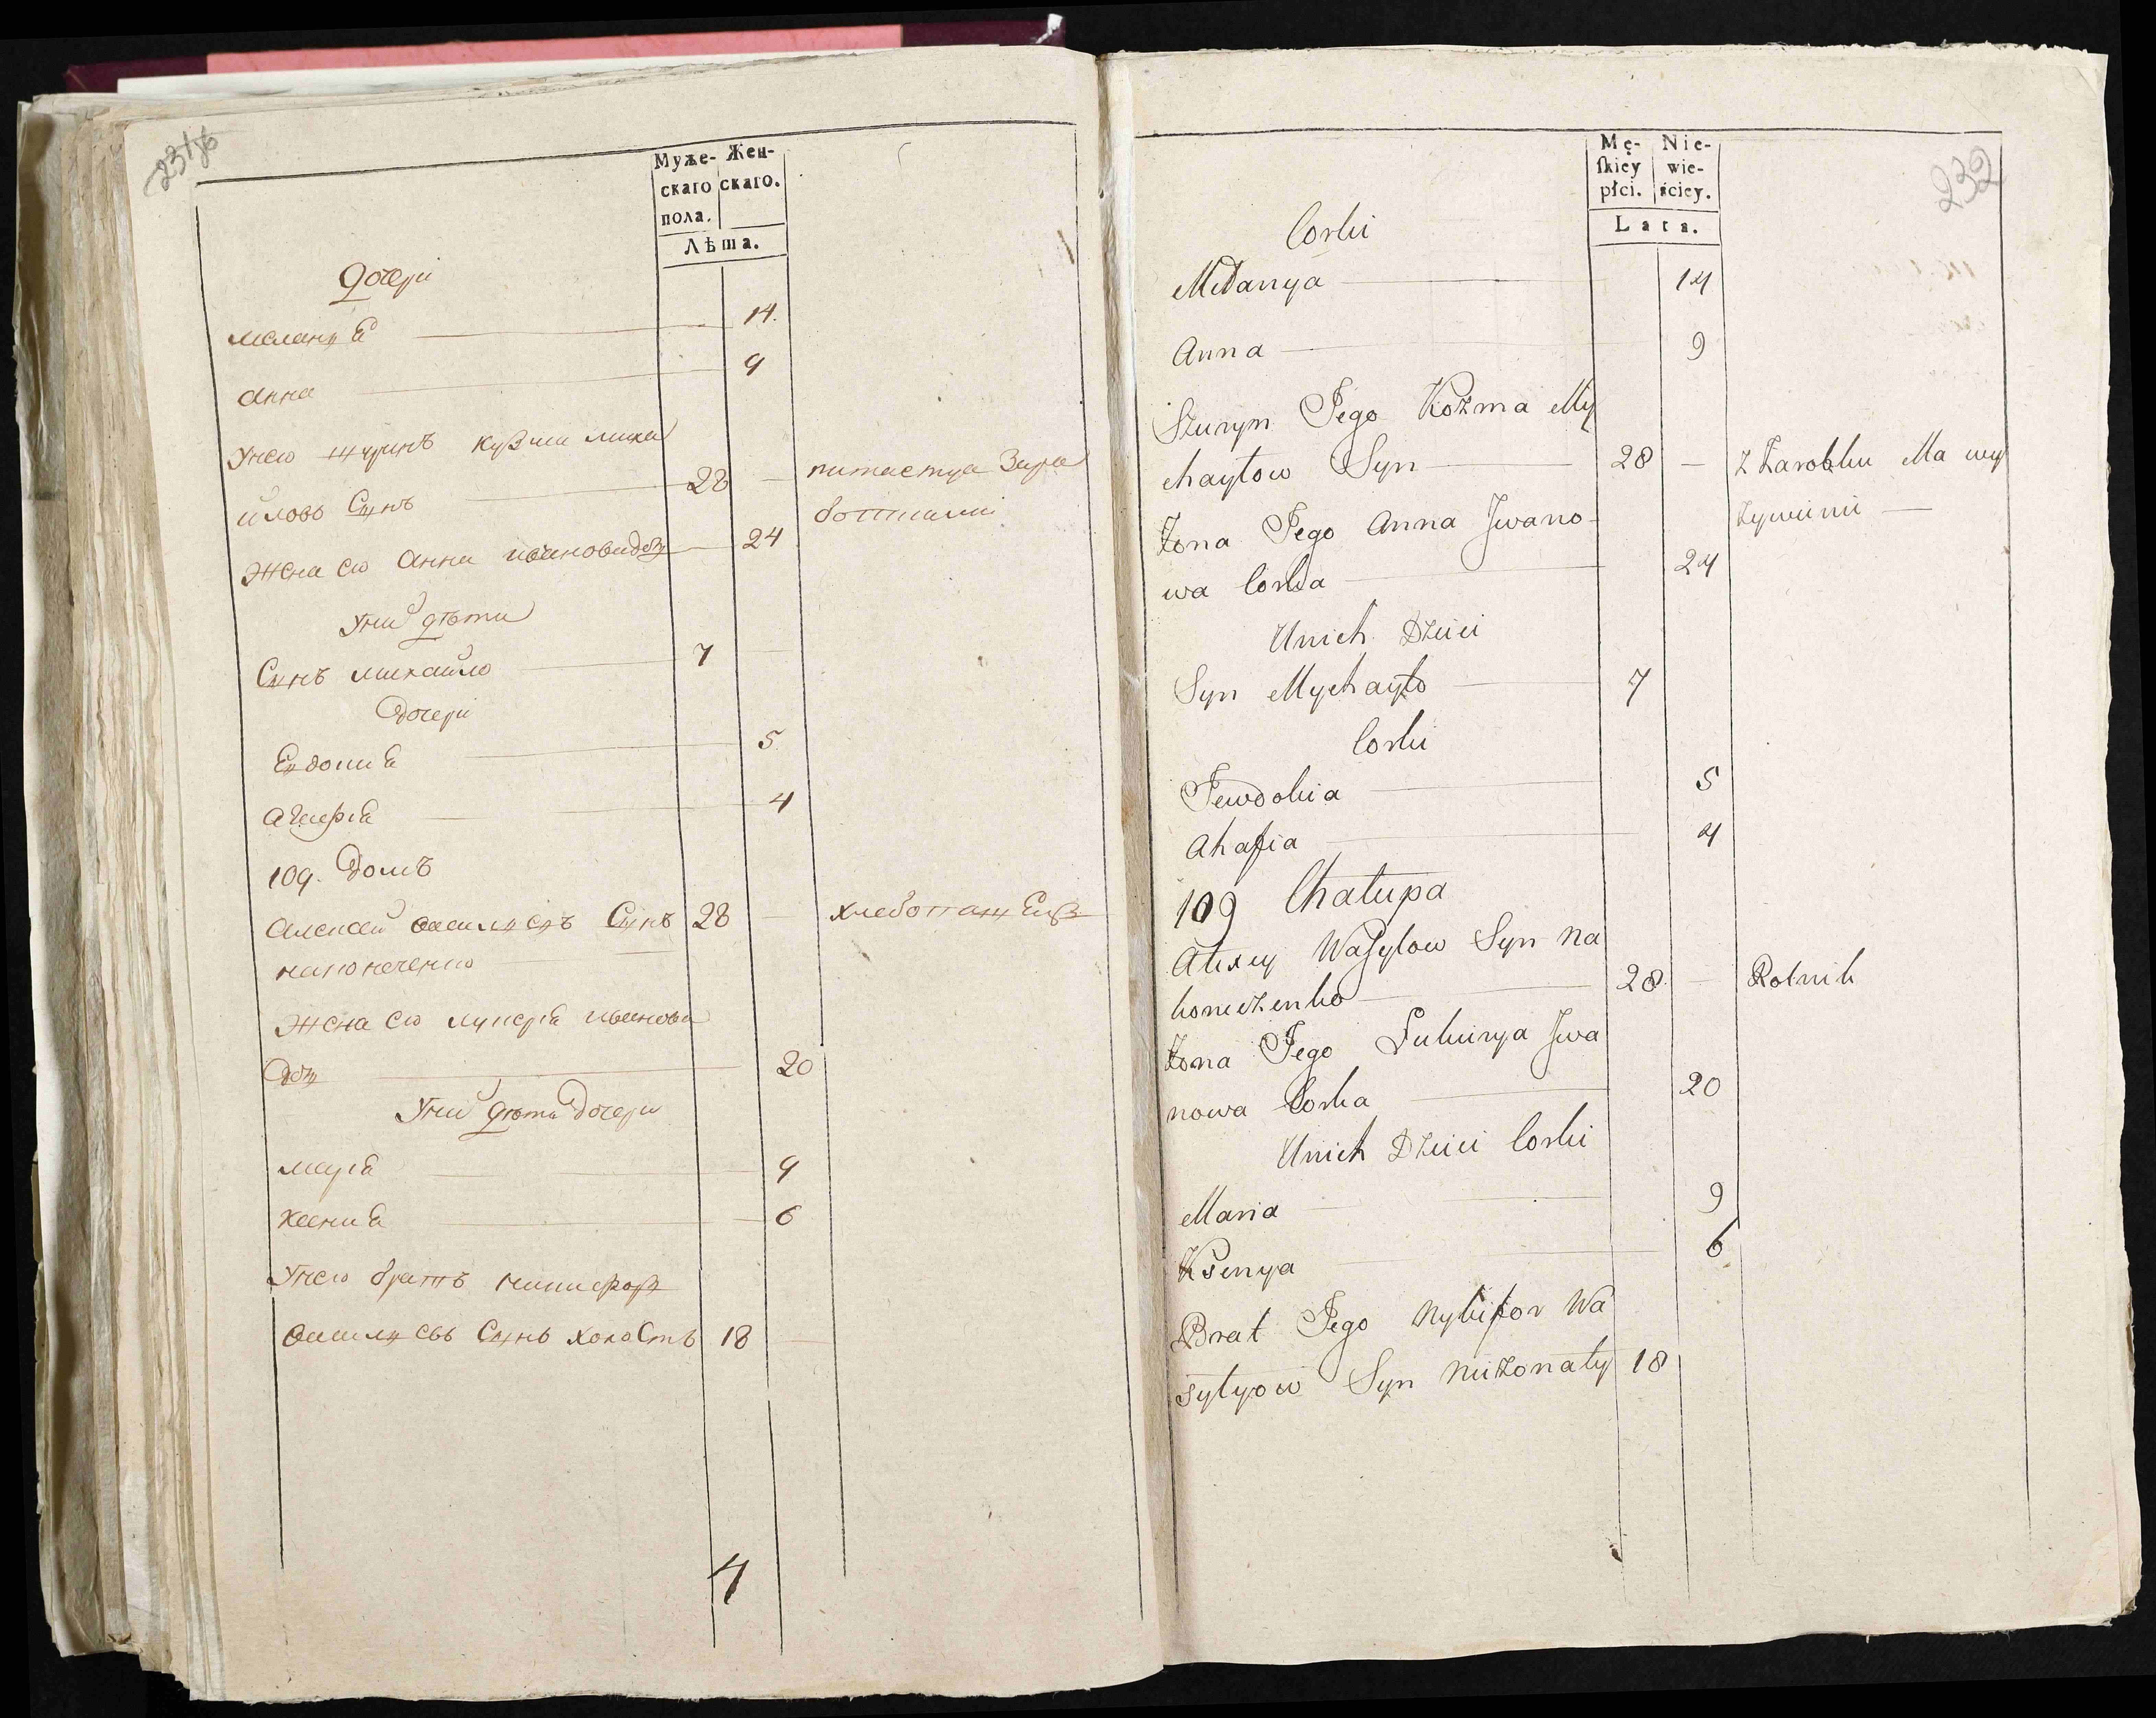 231об
Муже- Жен-
скаго скаго.
пола.
Лѣта.
Дочери
Меланья 14.
Анна 9
Унего шуринъ Кузма Миха
йловъ Сынъ 28 — питается Зара
ботками
Жена его Анна Иванова дочь 24
Уних дѣти
Сынъ Михайло 7
Дочери
Евдокия 5
Агафія 4
109. Домъ
Алексей Васильевъ Сынъ 28 — хлебопашецъ
наконеченко
Жена его Лукерія Иванова
Дочь 20
Уних дѣти Дочери
Марія 9
Ксения 6
Унего братъ Никифоръ
Васильевъ Сынъ холостъ 18
4
232
Mę- Nie-
skiey wie-
płci. ściey.
Lata.
Corki
Mełanya 14
Anna 9
Szuryn Jego Kozma My
chayłow Syn 28 — Z Zarobku Ma wy
Zona Jego Anna Jwano- żywienie
wa Corka 24
Unich Dzieci
Syn Mychayło 7
Corki
Jewdokia 5
Ahafia 4
109 Chałupa
Alexey Wasylow Syn Na
koneczenko 28 — Rolnik
Zona Jego Łukirya Jwa
nowa Corka 20
Unich Dzieci Corki
Maria 9
Ksenya 6
Brat Jego Nykifor Wa
sylyow Syn Nieżonaty 18